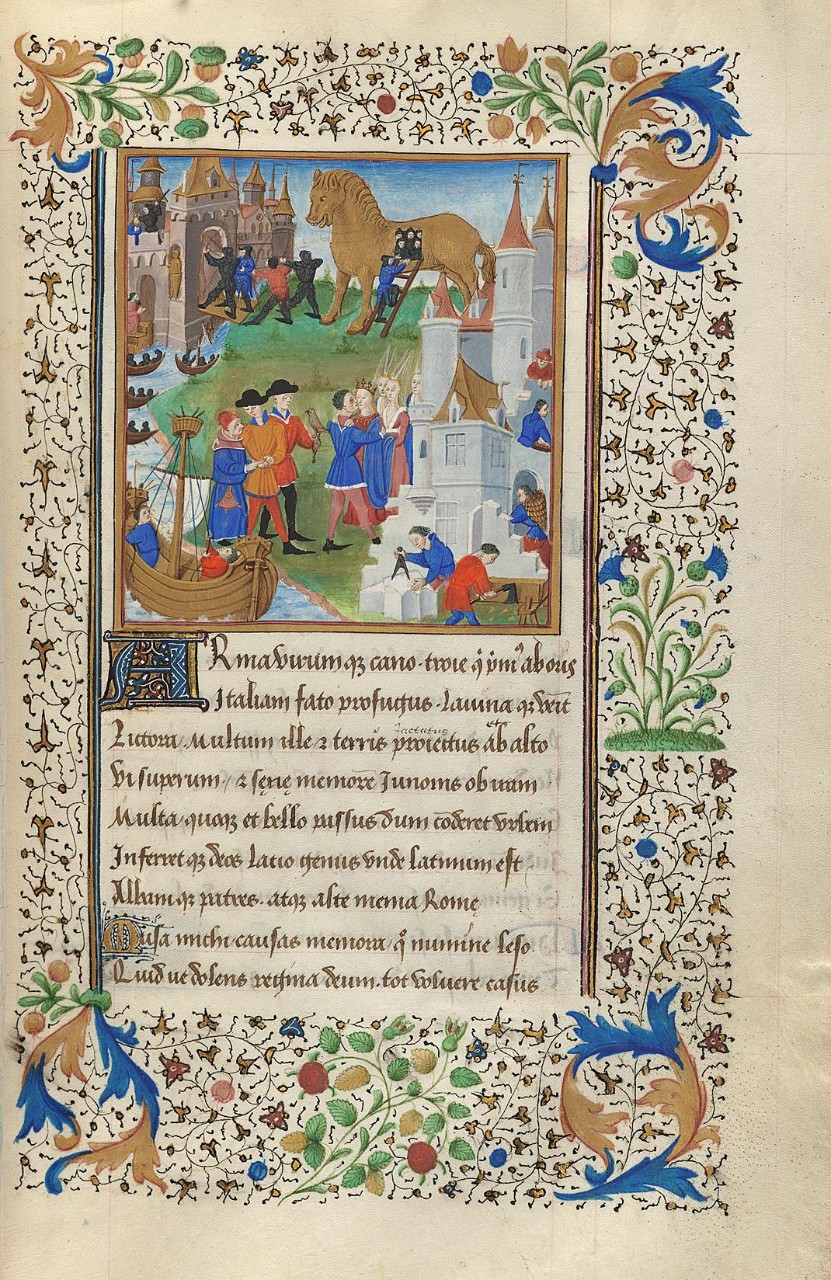 ARma virumqꝫ cano · troie q̇ pim᷒ ab oris
Italiam fato profugus · lavina qꝫ venit
Littora · Multum ille ⁊ terris proiectus et ab alto
iactatus
Vi superum / ⁊ sęuę memorē Iunonis ob iram
Multa · quoqꝫ et bello passus dum cōderet vrbem
Inferret qꝫ deos latio genus vnde latinum est
Albani qꝫ patres · atqꝫ alte menia Romę
Musa michi causas memora / q̊ numine leso
Quid ve dolens regina deum · tot voluere casus